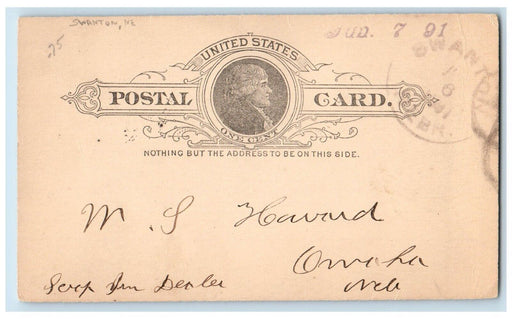 SWANTON, NE
25
JUL 7 91
UNITED STATES
POSTAL CARD.
ONE CENT
NOTHING BUT THE ADDRESS TO BE ON THIS SIDE.
SWANTON
NEB.
M. S Howard
Omaha
Scrap Iron Dealer
Neb